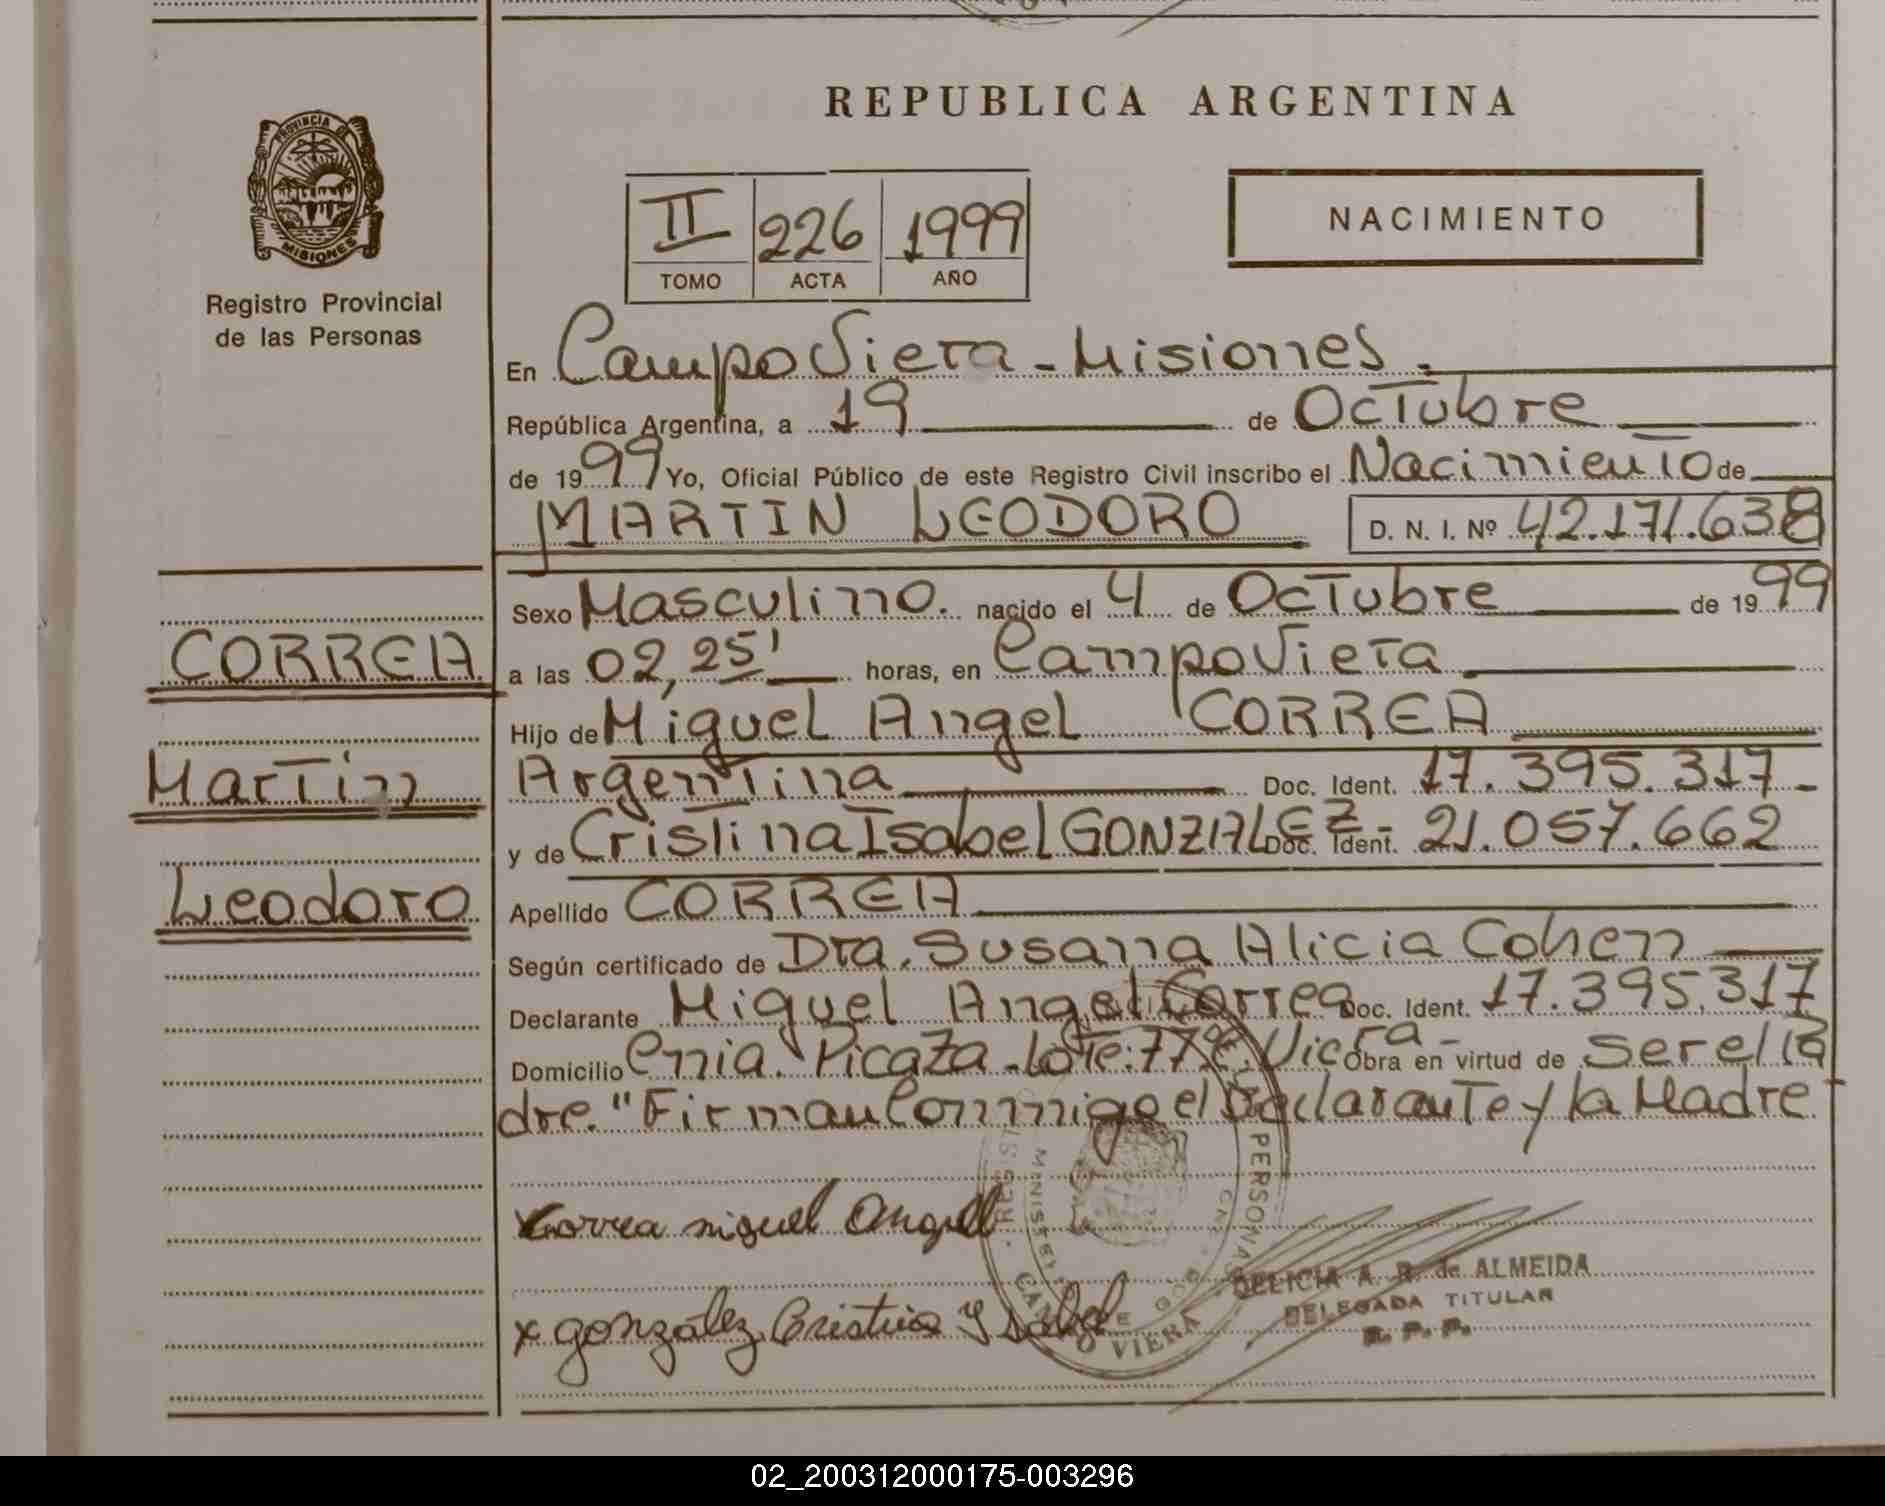 REPUBLICA ARGENTINA
PROVINCIA DE
MISIONES
Registro Provincial
de las Personas
II 226 1999
TOMO ACTA AÑO
NACIMIENTO
En Campo Viera - Misiones.
República Argentina, a 19 de Octubre
de 1999 Yo, Oficial Público de este Registro Civil inscribo el Nacimiento de
MARTIN LEODORO D. N. I. Nº 42.171.638
Sexo Masculino. nacido el 4 de Octubre de 1999
CORREA
a las 02,25' horas, en Campo Viera
Hijo de Miguel Angel CORREA
Martin
Argentina Doc. Ident. 17.395.317-
y de Cristina Isabel GONZALEZ- Doc. Ident. 21.057.662
Leodoro
Apellido CORREA
Según certificado de Dra. Susana Alicia Cohen
Declarante Miguel Angel Correa Doc. Ident. 17.395.317
Domicilio Cnia. Picaza - Lote: 77 C. Viera - Obra en virtud de ser el Pa
dre. "Firman Conmigo el Declarante y la Madre
x Correa miguel Angel
x gonzález Cristina Ysabel
CAMPO VIERA
DELICIA A. R. de ALMEIDA
DELEGADA TITULAR
R. P. P.
02_200312000175-003296